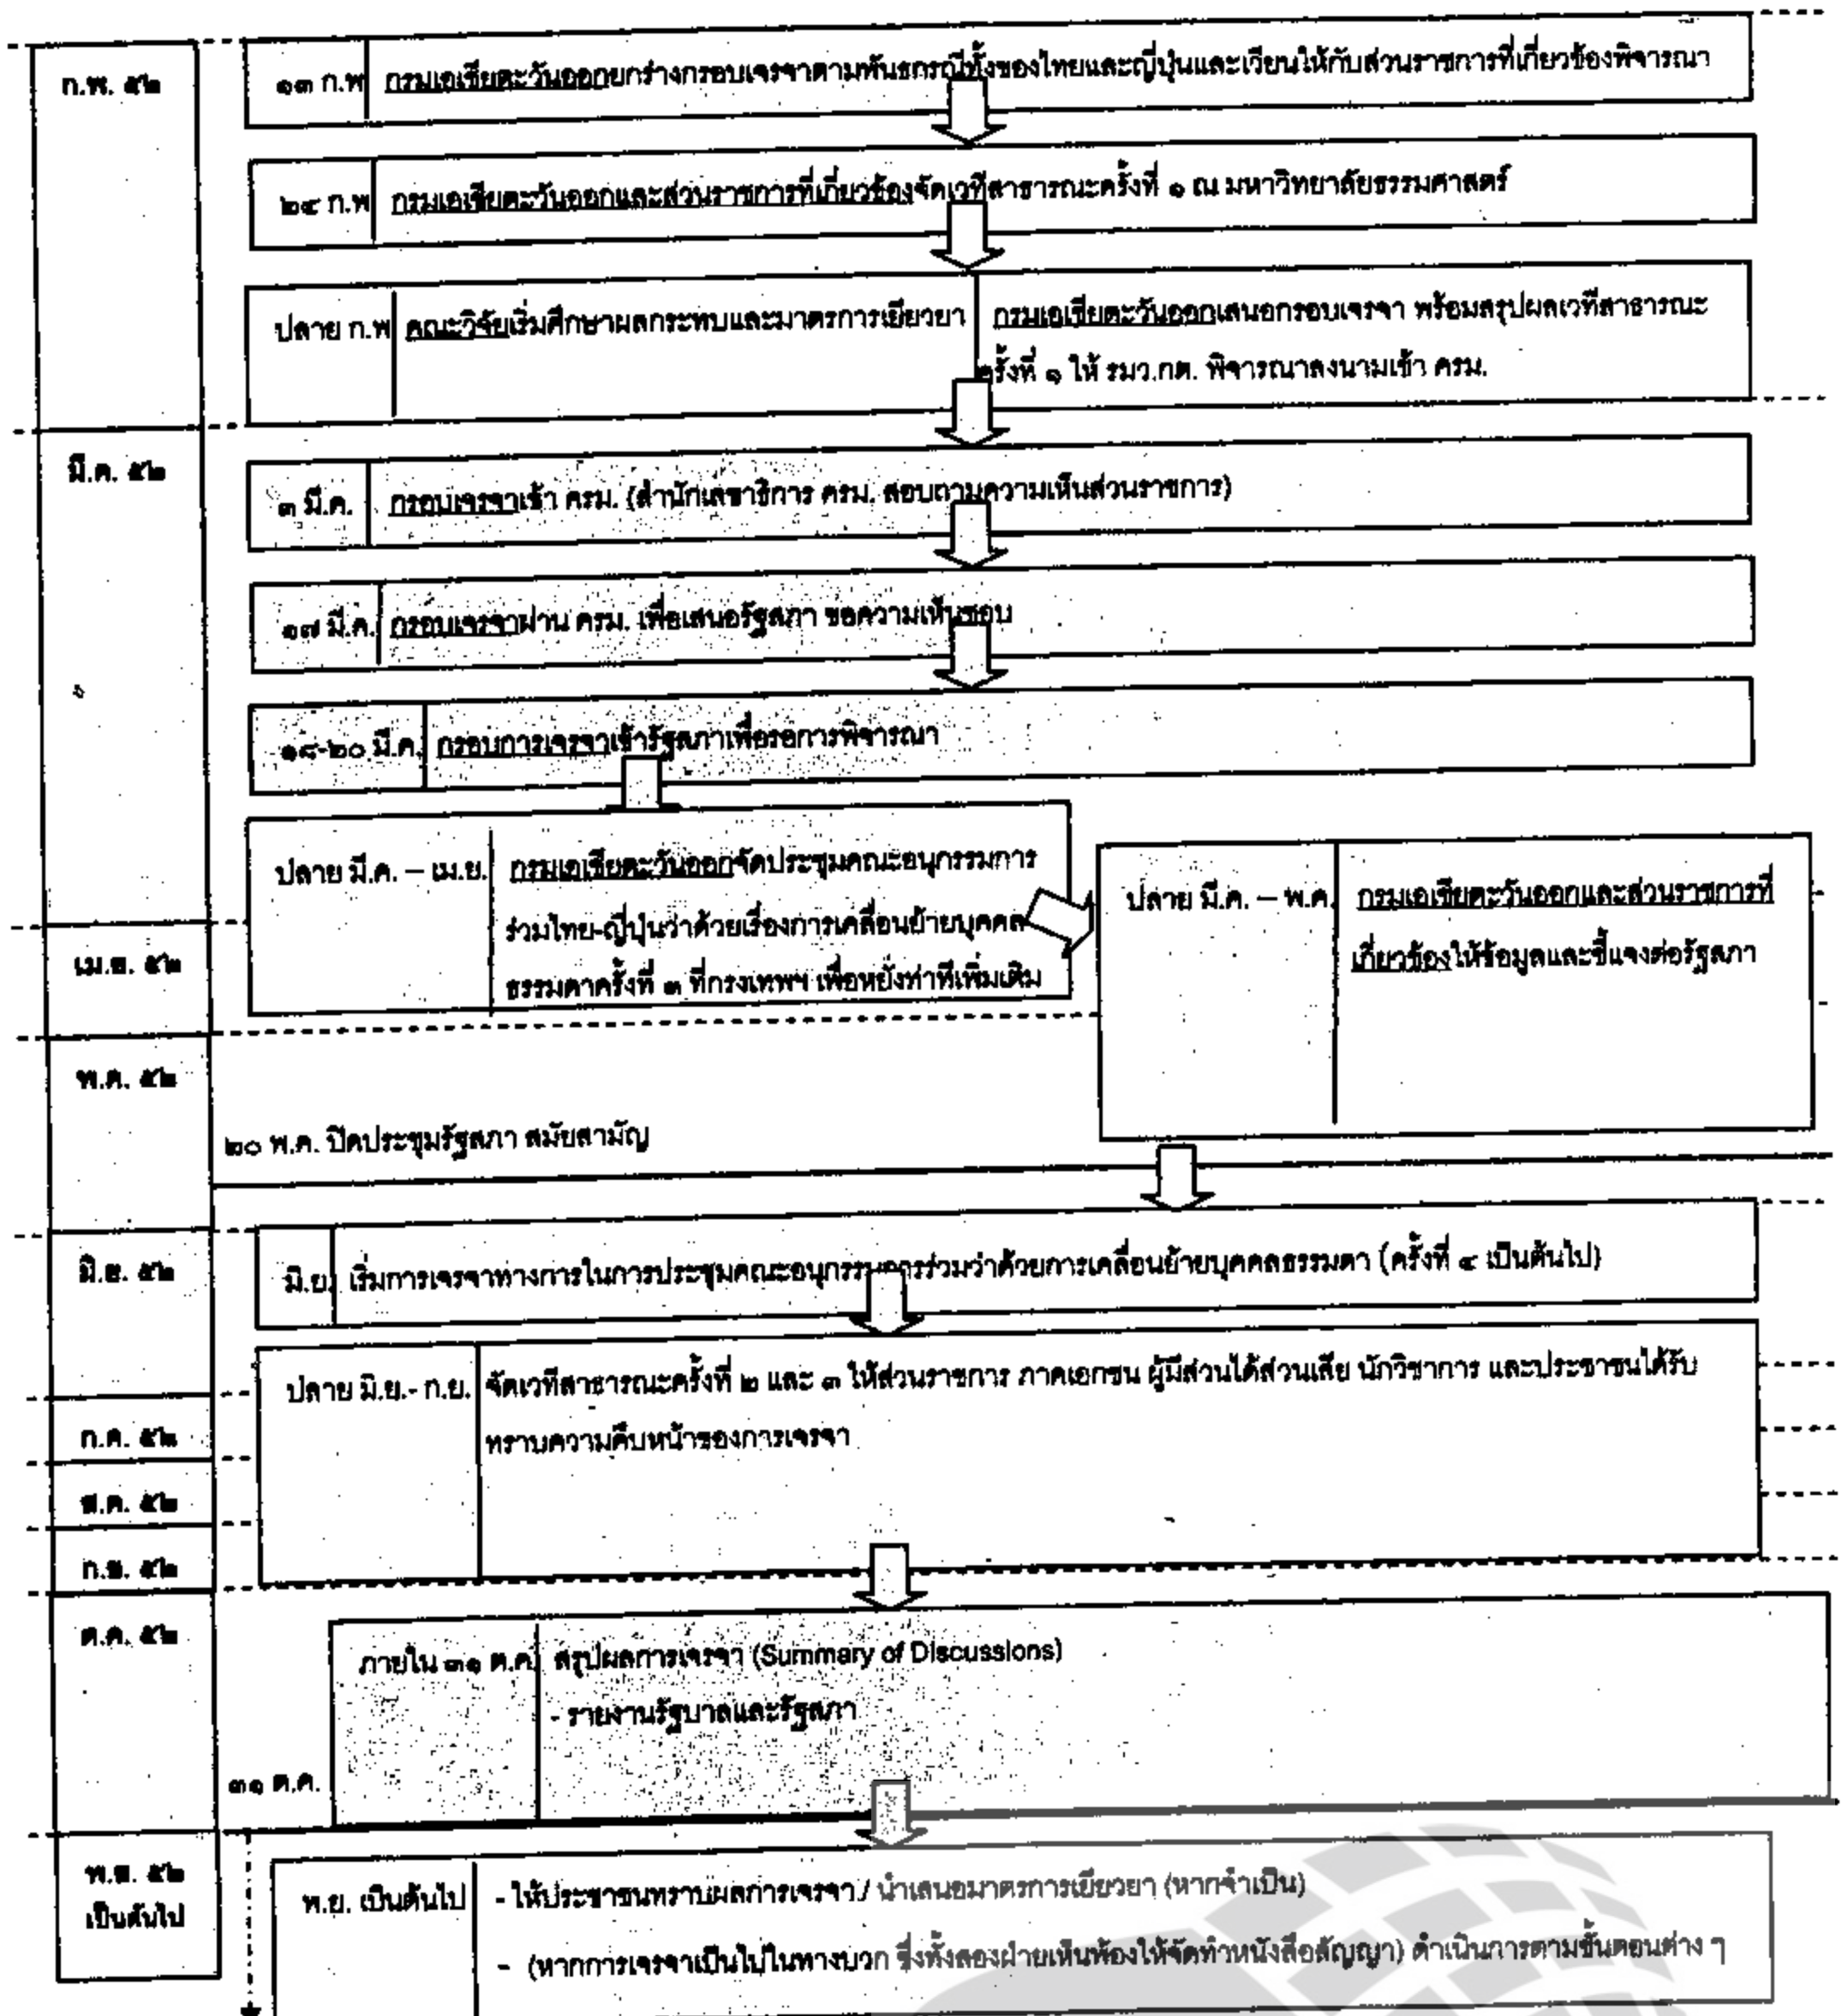 ก.พ. ๕๒
๑๓ ก.พ กรมเอเชียตะวันออกยกร่างกรอบเจรจาตามพันธกรณีทั้งของไทยและญี่ปุ่นและเวียนให้กับส่วนราชการที่เกี่ยวข้องพิจารณา
๒๔ ก.พ กรมเอเชียตะวันออกและส่วนราชการที่เกี่ยวข้องจัดเวทีสาธารณะครั้งที่ ๑ ณ มหาวิทยาลัยธรรมศาสตร์
ปลาย ก.พ คณะวิจัยเริ่มศึกษาผลกระทบและมาตรการเยียวยา
กรมเอเชียตะวันออกเสนอกรอบเจรจา พร้อมสรุปผลเวทีสาธารณะ
ครั้งที่ ๑ ให้ รมว.กต. พิจารณาลงนามเข้า ครม.
มี.ค. ๕๒
๓ มี.ค. กรอบเจรจาเข้า ครม. (สำนักเลขาธิการ ครม. สอบถามความเห็นส่วนราชการ)
๑๗ มี.ค. กรอบเจรจาผ่าน ครม. เพื่อเสนอรัฐสภา ขอความเห็นชอบ
๑๘-๒๐ มี.ค. กรอบการเจรจาเข้ารัฐสภาเพื่อรอการพิจารณา
ปลาย มี.ค. – เม.ย. กรมเอเชียตะวันออกจัดประชุมคณะอนุกรรมการ
ร่วมไทย-ญี่ปุ่นว่าด้วยเรื่องการเคลื่อนย้ายบุคคล
ธรรมดาครั้งที่ ๓ ที่กรุงเทพฯ เพื่อหยั่งท่าทีเพิ่มเติม
ปลาย มี.ค. – พ.ค. กรมเอเชียตะวันออกและส่วนราชการที่
เกี่ยวข้องให้ข้อมูลและชี้แจงต่อรัฐสภา
เม.ย. ๕๒
พ.ค. ๕๒
๒๐ พ.ค. ปิดประชุมรัฐสภา สมัยสามัญ
มิ.ย. ๕๒
มิ.ย. เริ่มการเจรจาทางการในการประชุมคณะอนุกรรมการร่วมว่าด้วยการเคลื่อนย้ายบุคคลธรรมดา (ครั้งที่ ๔ เป็นต้นไป)
ปลาย มิ.ย.- ก.ย. จัดเวทีสาธารณะครั้งที่ ๒ และ ๓ ให้ส่วนราชการ ภาคเอกชน ผู้มีส่วนได้ส่วนเสีย นักวิชาการ และประชาชนได้รับ
ทราบความคืบหน้าของการเจรจา
ก.ค. ๕๒
ส.ค. ๕๒
ก.ย. ๕๒
ต.ค. ๕๒
ภายใน ๓๑ ต.ค. สรุปผลการเจรจา (Summary of Discussions)
- รายงานรัฐบาลและรัฐสภา
๓๑ ต.ค.
พ.ย. ๕๒
เป็นต้นไป
พ.ย. เป็นต้นไป - ให้ประชาชนทราบผลการเจรจา / นำเสนอมาตรการเยียวยา (หากจำเป็น)
- (หากการเจรจาเป็นไปในทางบวก ซึ่งทั้งสองฝ่ายเห็นพ้องให้จัดทำหนังสือสัญญา) ดำเนินการตามขั้นตอนต่าง ๆ